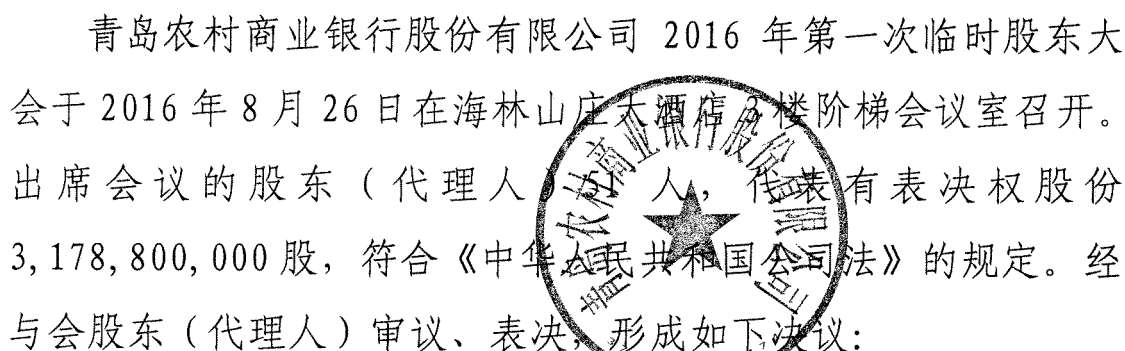 青岛农村商业银行股份有限公司 2016 年第一次临时股东大
会于 2016 年 8 月 26 日在海林山庄大酒店 3 楼阶梯会议室召开。
出席会议的股东（代理人）51 人，代表有表决权股份
3,178,800,000 股，符合《中华人民共和国公司法》的规定。经
与会股东（代理人）审议、表决，形成如下决议：
青岛农村商业银行股份有限公司